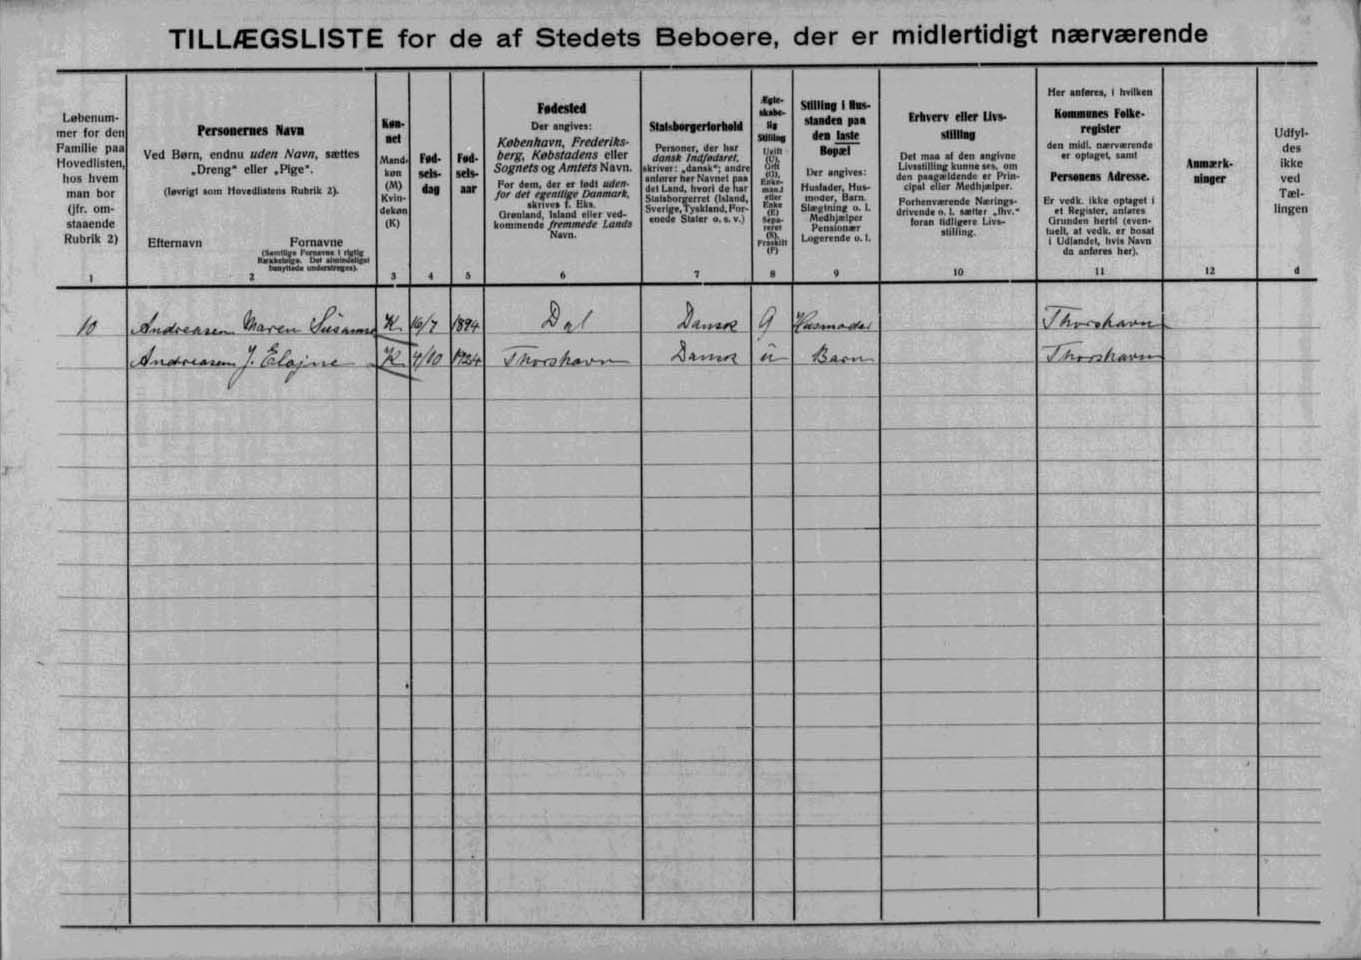 TILLÆGSLISTE for de af Stedets Beboere, der er midlertidigt nærværende
Løbenum-
mer for den
Familie paa
Hovedlisten,
hos hvem
man bor
(jfr. om-
staaende
Rubrik 2)
1
Personernes Navn
Ved Børn, endnu uden Navn, sættes
„Dreng“ eller „Pige“.
(Iøvrigt som Hovedlistens Rubrik 2).
Efternavn Fornavne
(Samtlige Fornavne i rigtig
Rækkefølge. Det almindeligst
benyttede understreges).
2
Køn-
net
Mand-
køn
(M)
Kvin-
dekøn
(K)
3
Fød-
sels-
dag
4
Fød-
sels-
aar
5
Fødested
Der angives:
København, Frederiks-
berg, Købstadens eller
Sognets og Amtets Navn.
For dem, der er født uden-
for det egentlige Danmark,
skrives f. Eks.
Grønland, Island eller ved-
kommende fremmede Lands
Navn.
6
Statsborgerforhold
Personer, der har
dansk Indfødsret,
skriver: „dansk“; andre
anfører her Navnet paa
det Land, hvori de har
Statsborgerret (Island,
Sverige, Tyskland, For-
enede Stater o. s. v.)
7
Ægte-
skabe-
lig
Stilling
Ugift
(U),
Gift
(G),
Enke-
mand
eller
Enke
(E)
Sepa-
reret
(S),
Fraskilt
(F)
8
Stilling i Hus-
standen paa
den faste
Bopæl
Der angives:
Husfader, Hus-
moder, Barn,
Slægtning o. l.
Medhjælper
Pensionær
Logerende o. l.
9
Erhverv eller Livs-
stilling
Det maa af den angivne
Livsstilling kunne ses, om
den paagældende er Prin-
cipal eller Medhjælper.
Forhenværende Nærings-
drivende o. l. sætter „fhv.“
foran tidligere Livs-
stilling.
10
Her anføres, i hvilken
Kommunes Folke-
register
den midl. nærværende
er optaget, samt
Personens Adresse.
Er vedk. ikke optaget i
et Register, anføres
Grunden hertil (even-
tuelt, at vedk. er bosat
i Udlandet, hvis Navn
da anføres her).
11
Anmærk-
ninger
12
Udfyl-
des
ikke
ved
Tæl-
lingen
d
10 Andreasen Maren Susanne K 16/7 1894 Dal Dansk G Husmoder Thorshavn
Andreasen J. Elojne K 4/10 1924 Thorshavn Dansk U Barn Thorshavn